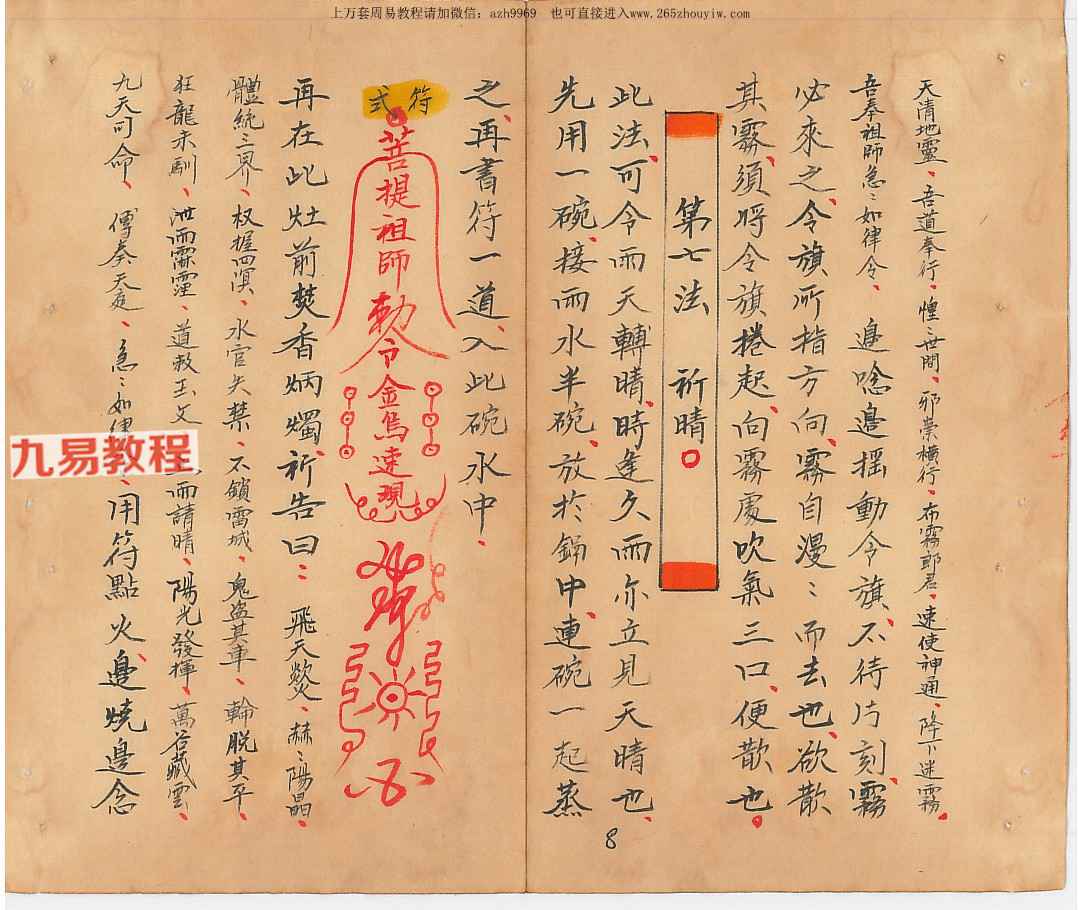 上万套周易教程请加微信：azh9969 也可直接进入www.265zhouyiw.com
天清地靈、吾道奉行、煌〻世間、邪祟橫行、布霧郎君、速使神通、降下迷霧、
吾奉祖師急〻如律令、邊唸邊揺動令旗、不待片刻、霧
必來之、令旗所指方向、霧自漫〻而去也、欲散
其霧、須将令旗捲起、向霧處吹氣三口、便散也。
第七法 祈晴
此法、可令雨天轉晴、時逢久雨亦立見天晴也、
先用一碗、接雨水半碗、放於鍋中、連碗一起蒸
8
之、再書符一道、入此碗水中、
符式
菩提祖師勅令金烏速現
再在此灶前焚香炳燭、祈告曰：飛天燚、赫〻陽晶、
體統三界、权握四溟、水官失禁、不鎖雷城、鬼盗其車、輪脱其平、
狂龍未馴、泄雨霈霪、道敕玉文、雨請晴、陽光發揮、萬谷藏雲、
九天司命、傳奏天庭、急〻如律、用符點火、邊燒邊念
九易教程